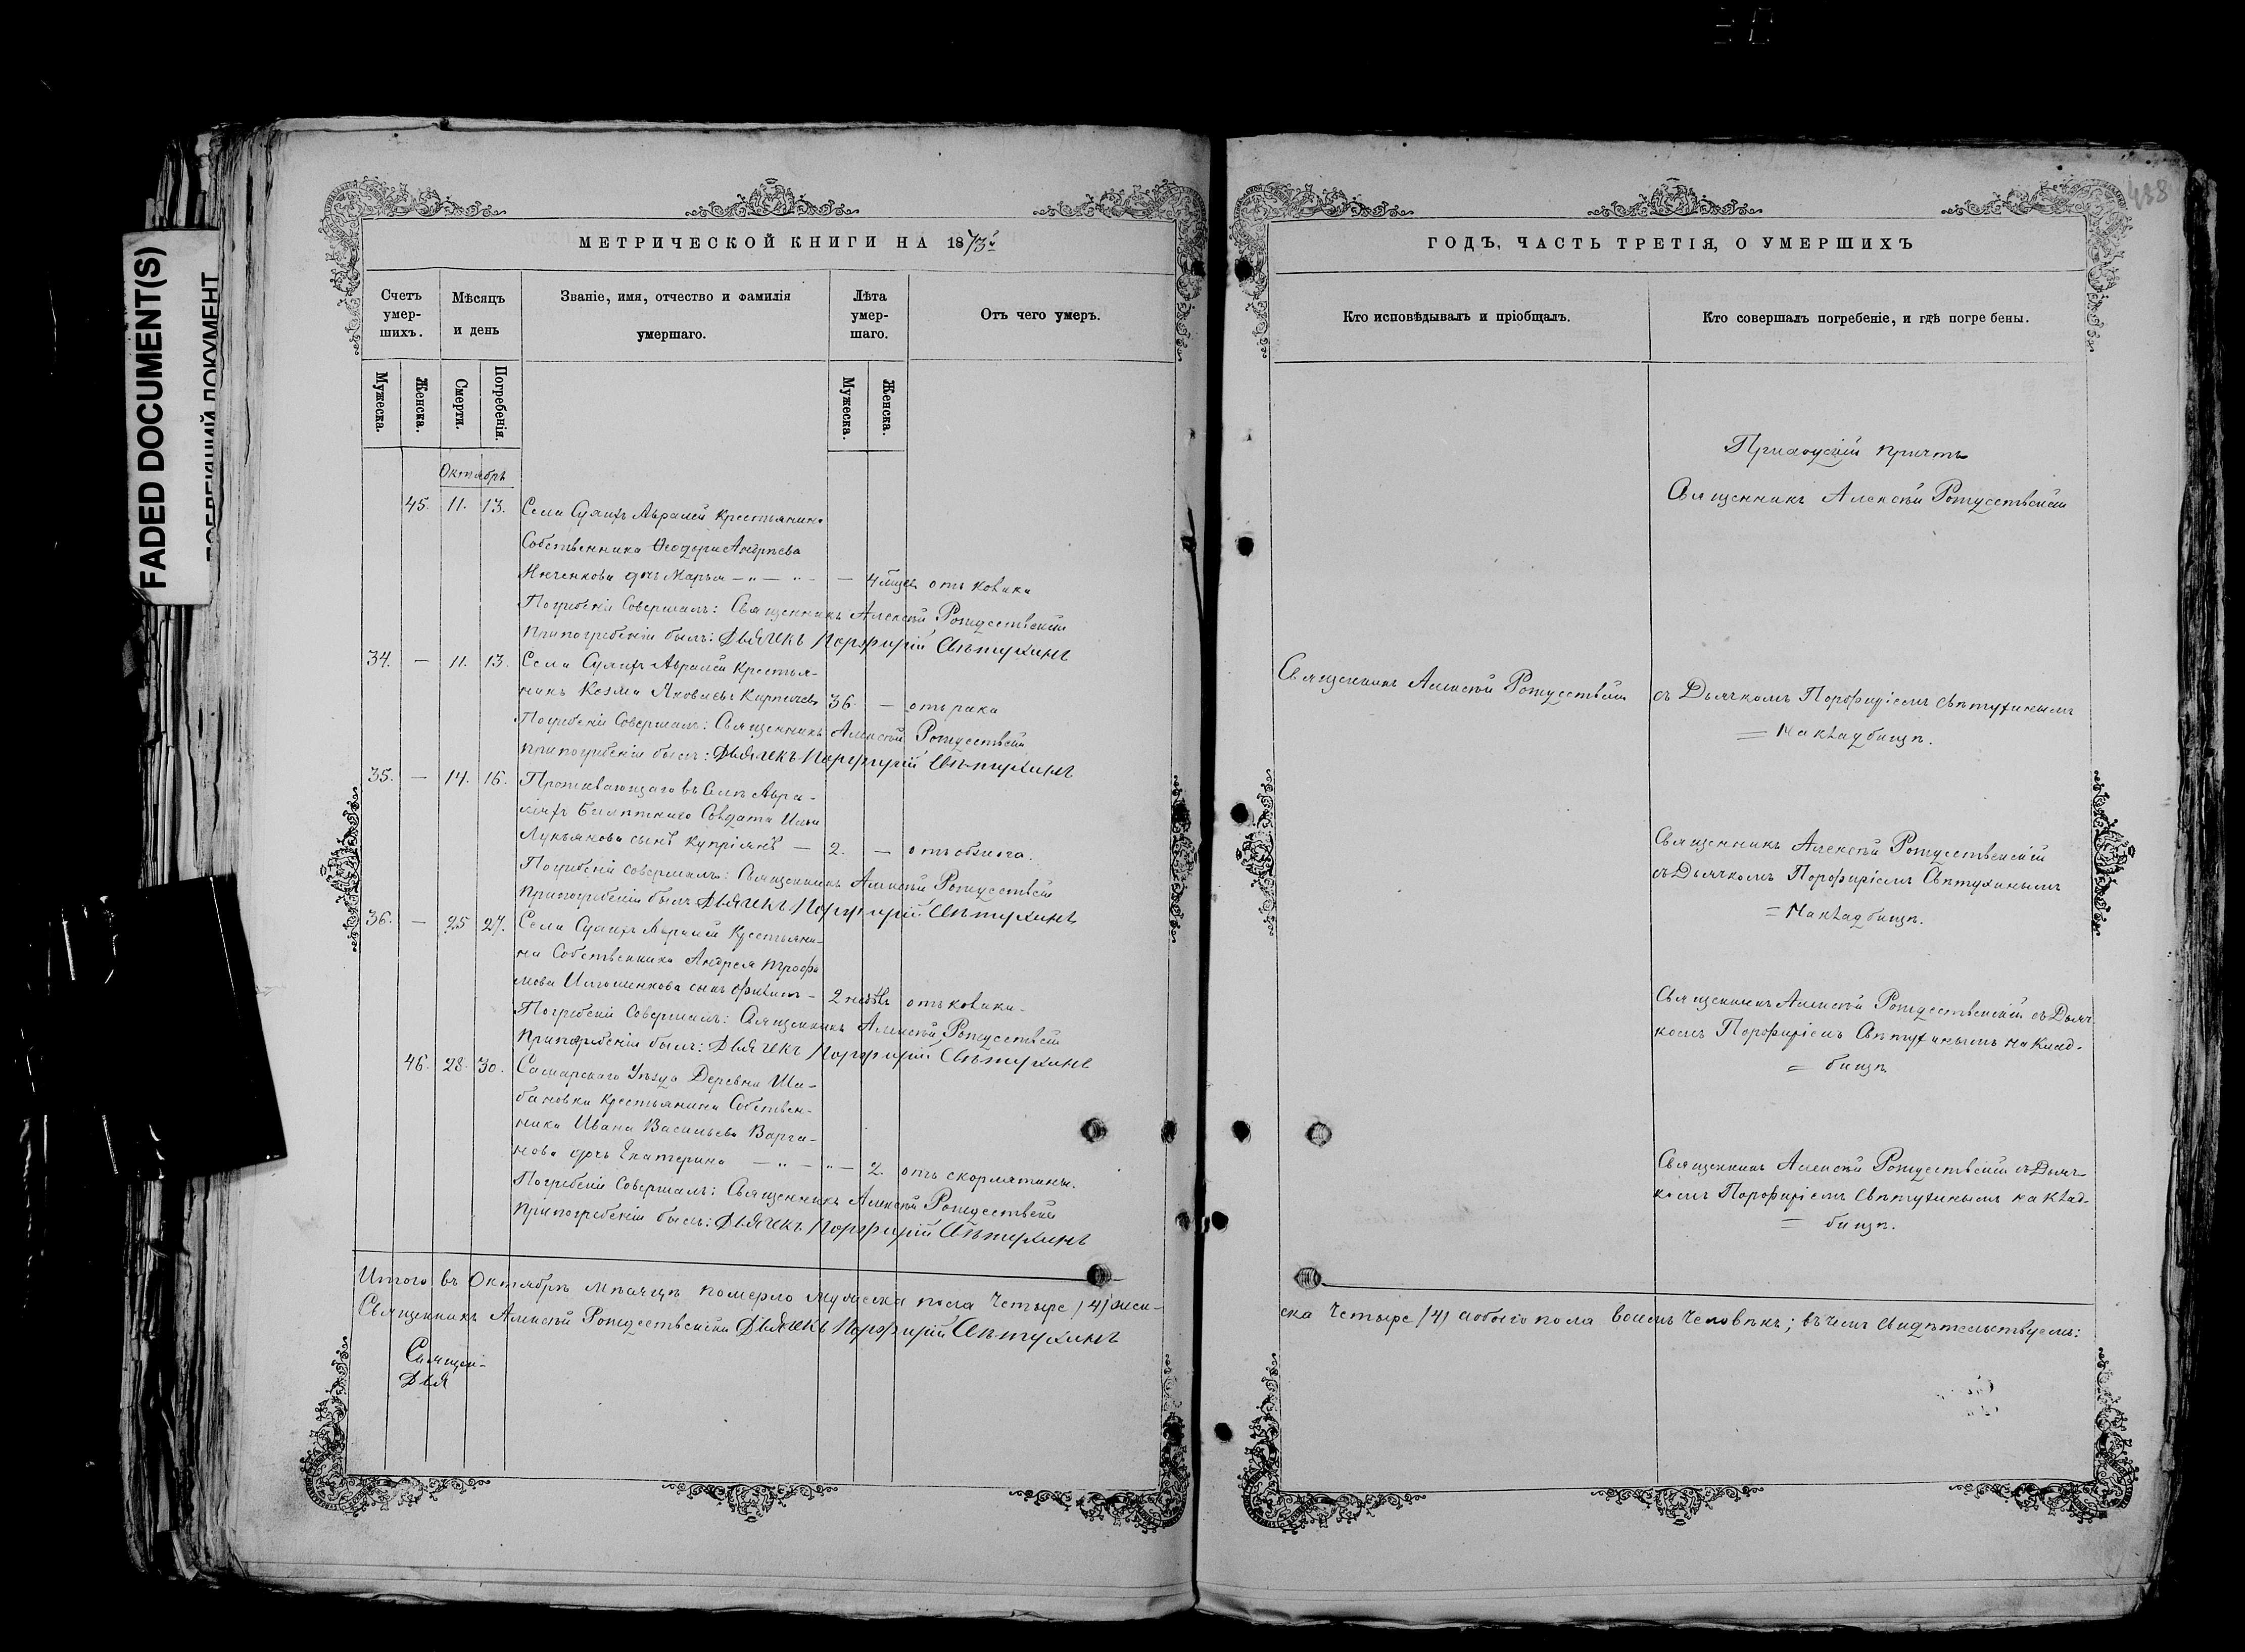 FADED DOCUMENT(S)
438
МЕТРИЧЕСКОЙ КНИГИ НА 1873й
Счетъ умер-шихъ.
Мѣсяцъ и день
Званіе, имя, отчество и фамилія умершаго.
Лѣта умер-шаго.
Отъ чего умеръ.
Мужеска.
Женска.
Смерти.
Погребенія.
Мужеска.
Женска.
Октябрь
45. 11. 13. Села Сухихъ Авралей Крестьянина
Собственника Ѳеодора Андреева
дочь Марья — „ — „ — — 4 мѣсц. отъ колики
Погребеніе Совершалъ: Священникъ Алексѣй Рождественскій
При погребеніи былъ: Дьячекъ Порфирій Свѣтухинъ
34. — 11. 13. Села Сухихъ Авралей Крестья-
нинъ Козма Яковлевъ 36. — отъ рака
Погребеніе Совершалъ: Священникъ Алексѣй Рождествскій
При погребеніи былъ: Дьячекъ Порфирій Свѣтухинъ
35. — 14. 16. Проживающаго въ Селѣ Авра-
Билетнаго Солдата Ильи
Лукьянова сынъ Купріянъ — 2. — отъ обжога.
Погребеніе совершалъ: Священникъ Алексѣй Рождествскій
При погребеніи былъ Дьячекъ Порфирій Свѣтухинъ
36. — 25 27. Села Сухихъ Авралей Крестьяни-
на Собственника Андрея Трофи
мова сынъ Филипъ — 2 недѣль отъ колики.
Погребеніе Совершалъ: Священникъ Алексѣй Рождествскій
При погребеніи былъ: Дьячекъ Порфирій Свѣтухинъ
46. 28. 30. Самарскаго Уѣзда Деревни Ши-
бановки Крестьянина Собствен-
ника Ивана Васильева Варга-
нова дочь Екатерина — „ — „ — 2. отъ скорлятины.
Погребеніе Совершалъ: Священникъ Алексѣй Рождествскій
При погребеніи былъ: Дьячекъ Порфирій Свѣтухинъ
Итого въ Октябрѣ мѣсяцѣ померло мужеска пола Четыре /4/ жен-
Священникъ Алексѣй Рождественскій Дьячекъ Порфирій Свѣтухинъ
Священ-
Дья
ГОДЪ, ЧАСТЬ ТРЕТІЯ, О УМЕРШИХЪ
Кто исповѣдывалъ и пріобщалъ.
Кто совершалъ погребеніе, и гдѣ погребены.
Приходскій причтъ
Священникъ Алексѣй Рождественскій
Священникъ Алексѣй Рождествскій
съ Дьячкомъ Порфиріемъ Свѣтухинымъ
= На кладбищѣ.
Священникъ Алексѣй Рождественскій
съ Дьячкомъ Порфиріемъ Свѣтухинымъ
= На кладбищѣ.
Священникъ Алексѣй Рождественскій съ Дьяч-
комъ Порфиріемъ Свѣтухинымъ на Клад-
= бищѣ
Священникъ Алексѣй Рождествскій съ Дьяч-
комъ Порфиріемъ Свѣтухинымъ на Клад-
= бищѣ.
ска Четыре /4/ а обоего пола восемь человѣкъ; въ чемъ свидѣтельствуемъ: